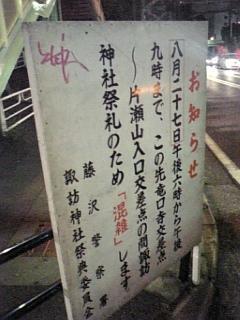 お知らせ
八月二十七日午後六時から午後
九時まで、この先竜口寺交差点
～片瀬山入口交差点の間諏訪
神社祭礼のため「混雑」します
藤沢警察署
諏訪神社祭典委員会